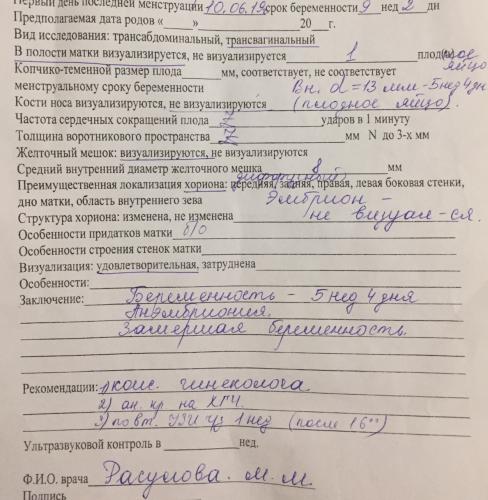 Первый день последней менструации 10.06.19 срок беременности 9 нед 2 дн
Предполагаемая дата родов «____»__________20__г.
Вид исследования: трансабдоминальный, трансвагинальный
В полости матки визуализируется, не визуализируется 1 плод(а) ное яйцо
Копчико-теменной размер плода______мм, соответствует, не соответствует
менструальному сроку беременности Вн. d = 13 мм - 5 нед 4 дн
Кости носа визуализируются, не визуализируются (плодное яйцо).
Частота сердечных сокращений плода ударов в 1 минуту
Толщина воротникового пространства мм N до 3-х мм
Желточный мешок: визуализируются, не визуализируются
Средний внутренний диаметр желточного мешка 8 мм
Преимущественная локализация хориона: передняя, задняя, правая, левая боковая стенки,
дно матки, область внутреннего зева Эмбрион -
Структура хориона: изменена, не изменена не визуал-ся.
Особенности придатков матки б/о
Особенности строения стенок матки
Визуализация: удовлетворительная, затруднена
Особенности:
Заключение: Беременность - 5 нед 4 дня
Анэмбриония.
Замершая беременность.
Рекомендации: 1) конс. гинеколога.
2) ан. кр на ХГЧ.
3) повт. УЗИ ч/з 1 нед (после 16⁰⁰)
Ультразвуковой контроль в __________ нед.
Ф.И.О. врача Расулова. М. М.
Подпись